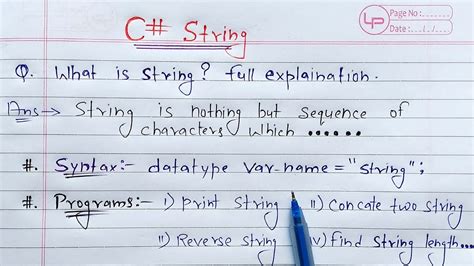 LP Page No:.......
Date:.../.../...
C# String
Q. What is string? full explaination.
Ans→ String is nothing but sequence of
characters which ......
#. Syntax:- datatype var-name = "string";
#. Programs:- i) print string ii) Concate two string
ii) Reverse string iv) find string length...